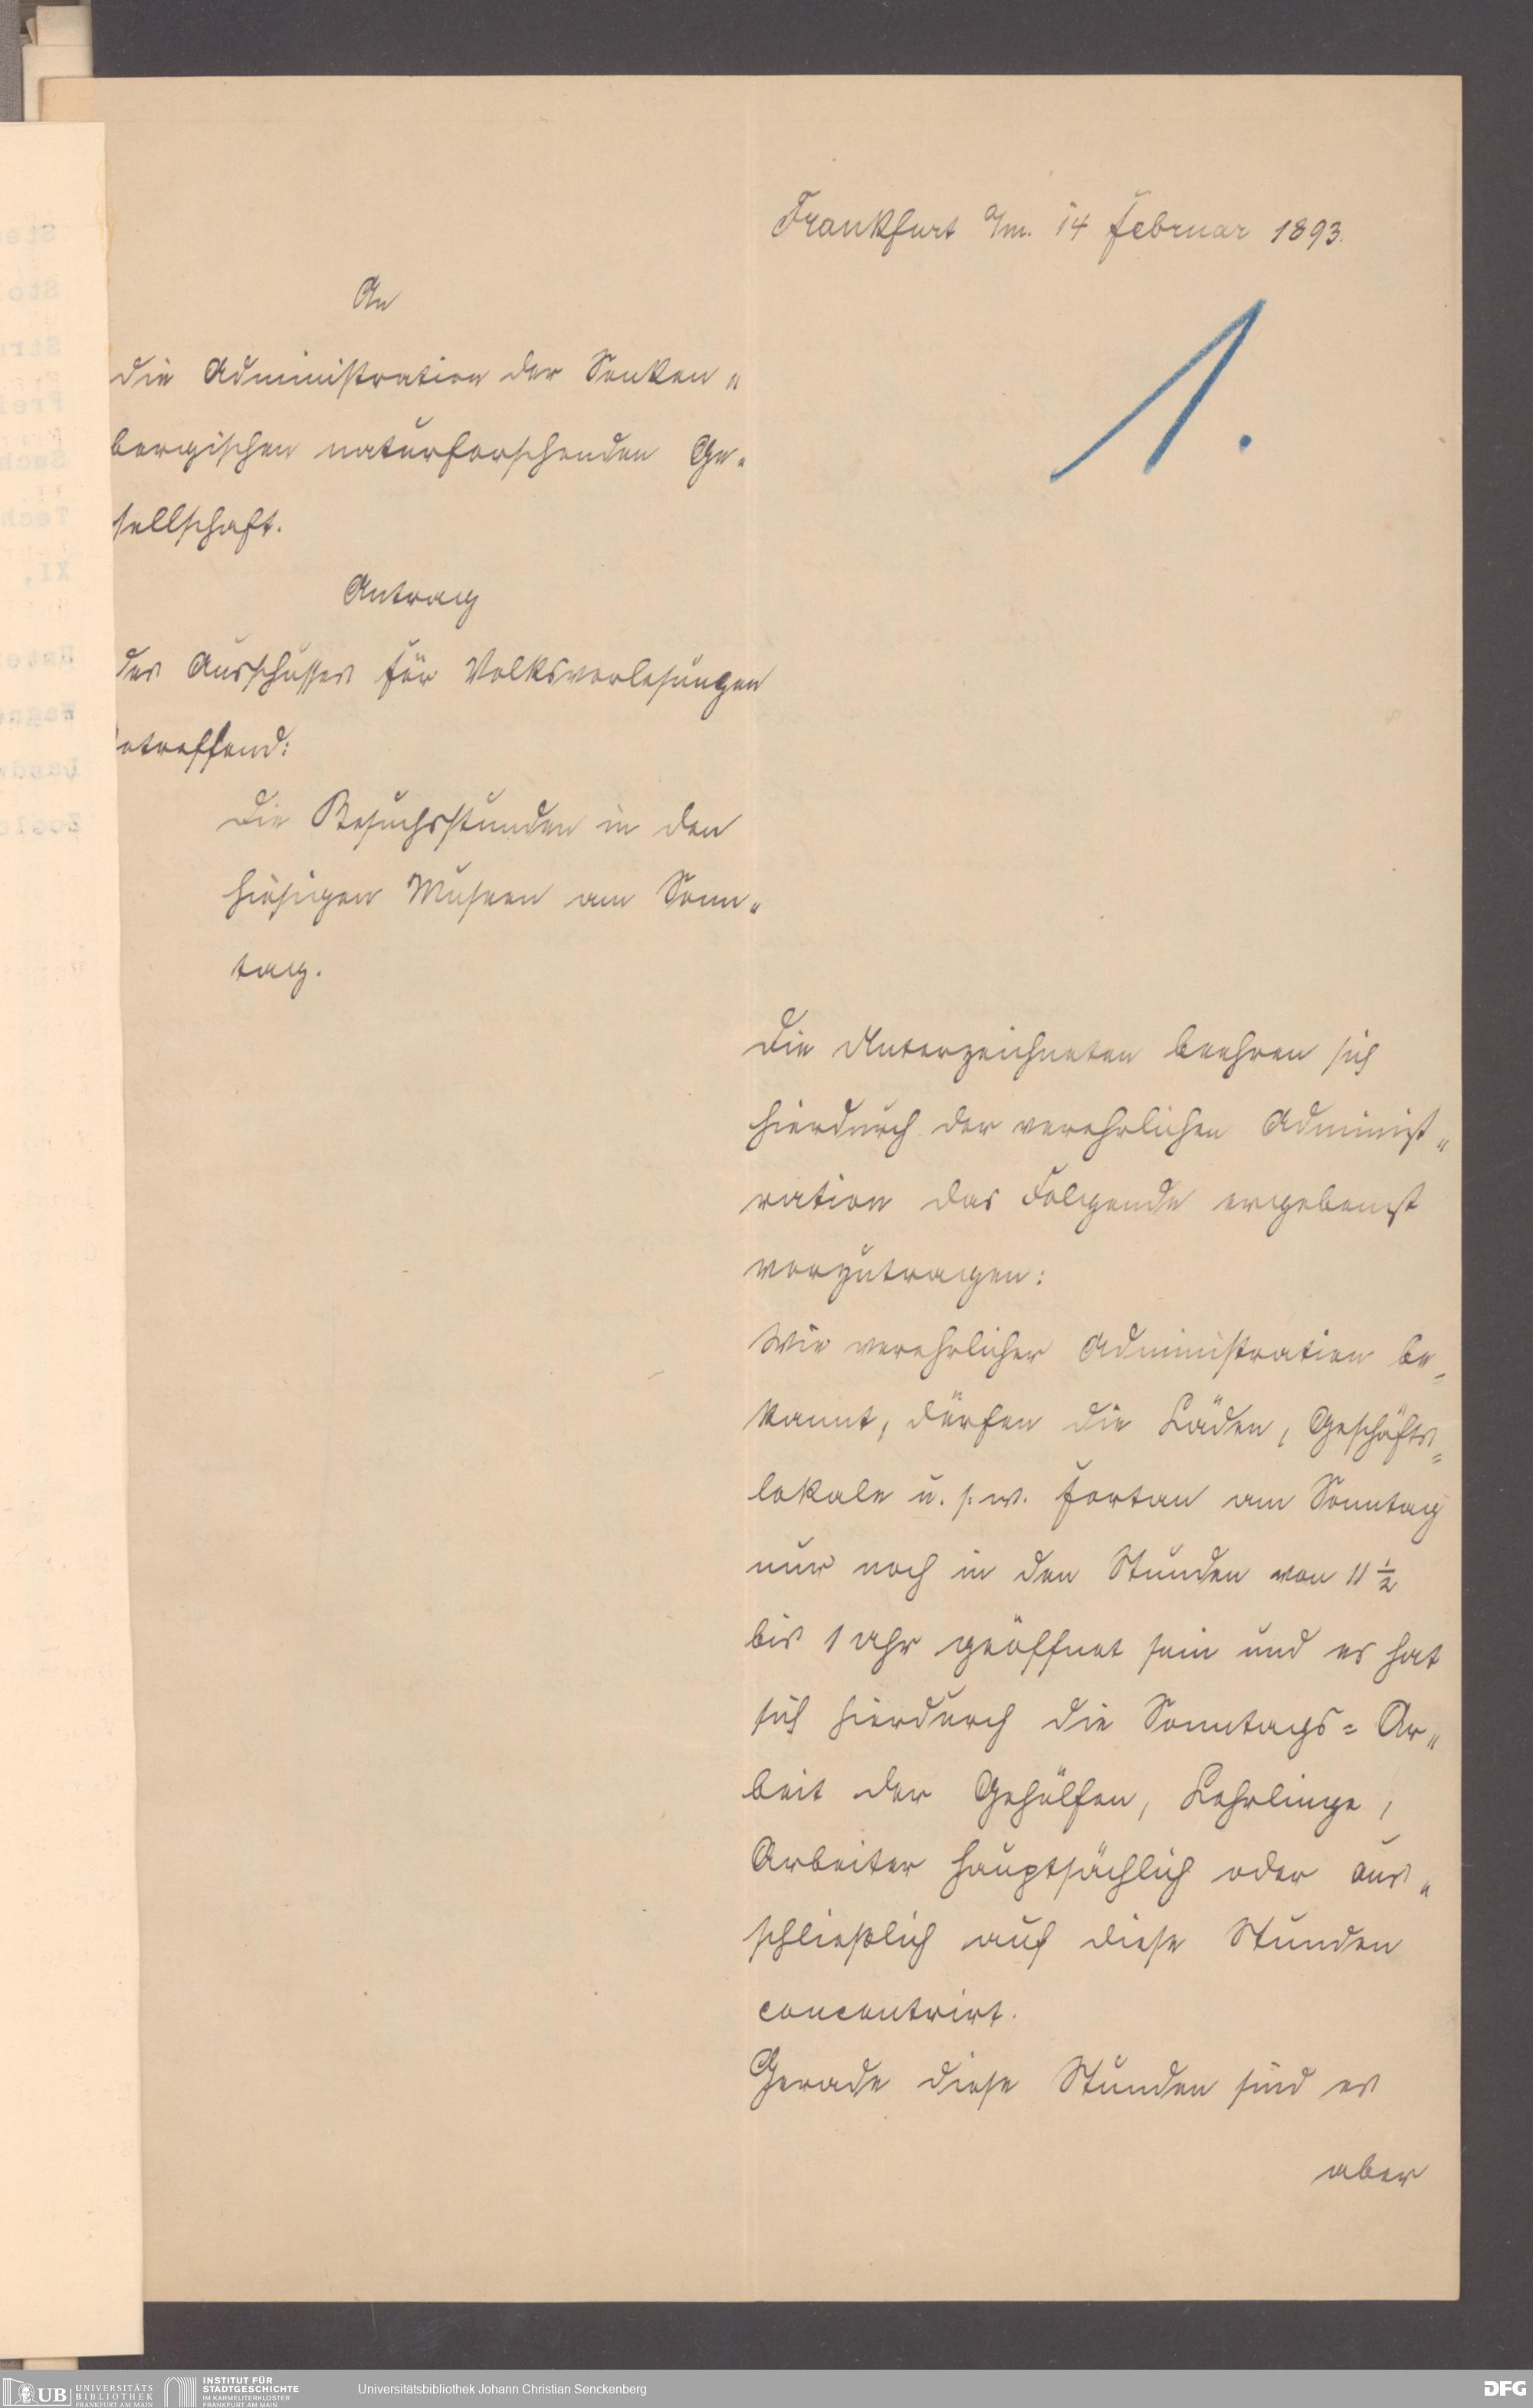 Frankfurt a/m. 14 Februar 1893.
1.
An
die Administration der Senken„
bergischen naturforschenden Ge„
sellschaft.
Antrag
des Ausschusses für Volksvorlesungen
betreffend:
Die Besuchsstunden in den
hiesigen Museen am Sonn„
tag.
Die Unterzeichneten beehren sich
hierdurch der verehrlichen Administ„
ration das Folgende ergebenst
vorzutragen:
Wie verehrlicher Administration be„
kannt, dürfen die Läden, Geschäfts=
lokale u. s. w. fortan am Sonntag
nur noch in den Stunden von 11 1/2
bis 1 Uhr geöffnet sein und es hat
sich hierdurch die Sonntags=Ar„
beit der Gehülfen, Lehrlinge,
Arbeiter hauptsächlich oder aus„
schließlich auf diese Stunden
concentrirt.
Gerade diese Stunden sind es
aber
UB UNIVERSITÄTS
BIBLIOTHEK
FRANKFURT AM MAIN
INSTITUT FÜR
STADTGESCHICHTE
IM KARMELITERKLOSTER
FRANKFURT AM MAIN
Universitätsbibliothek Johann Christian Senckenberg
DFG